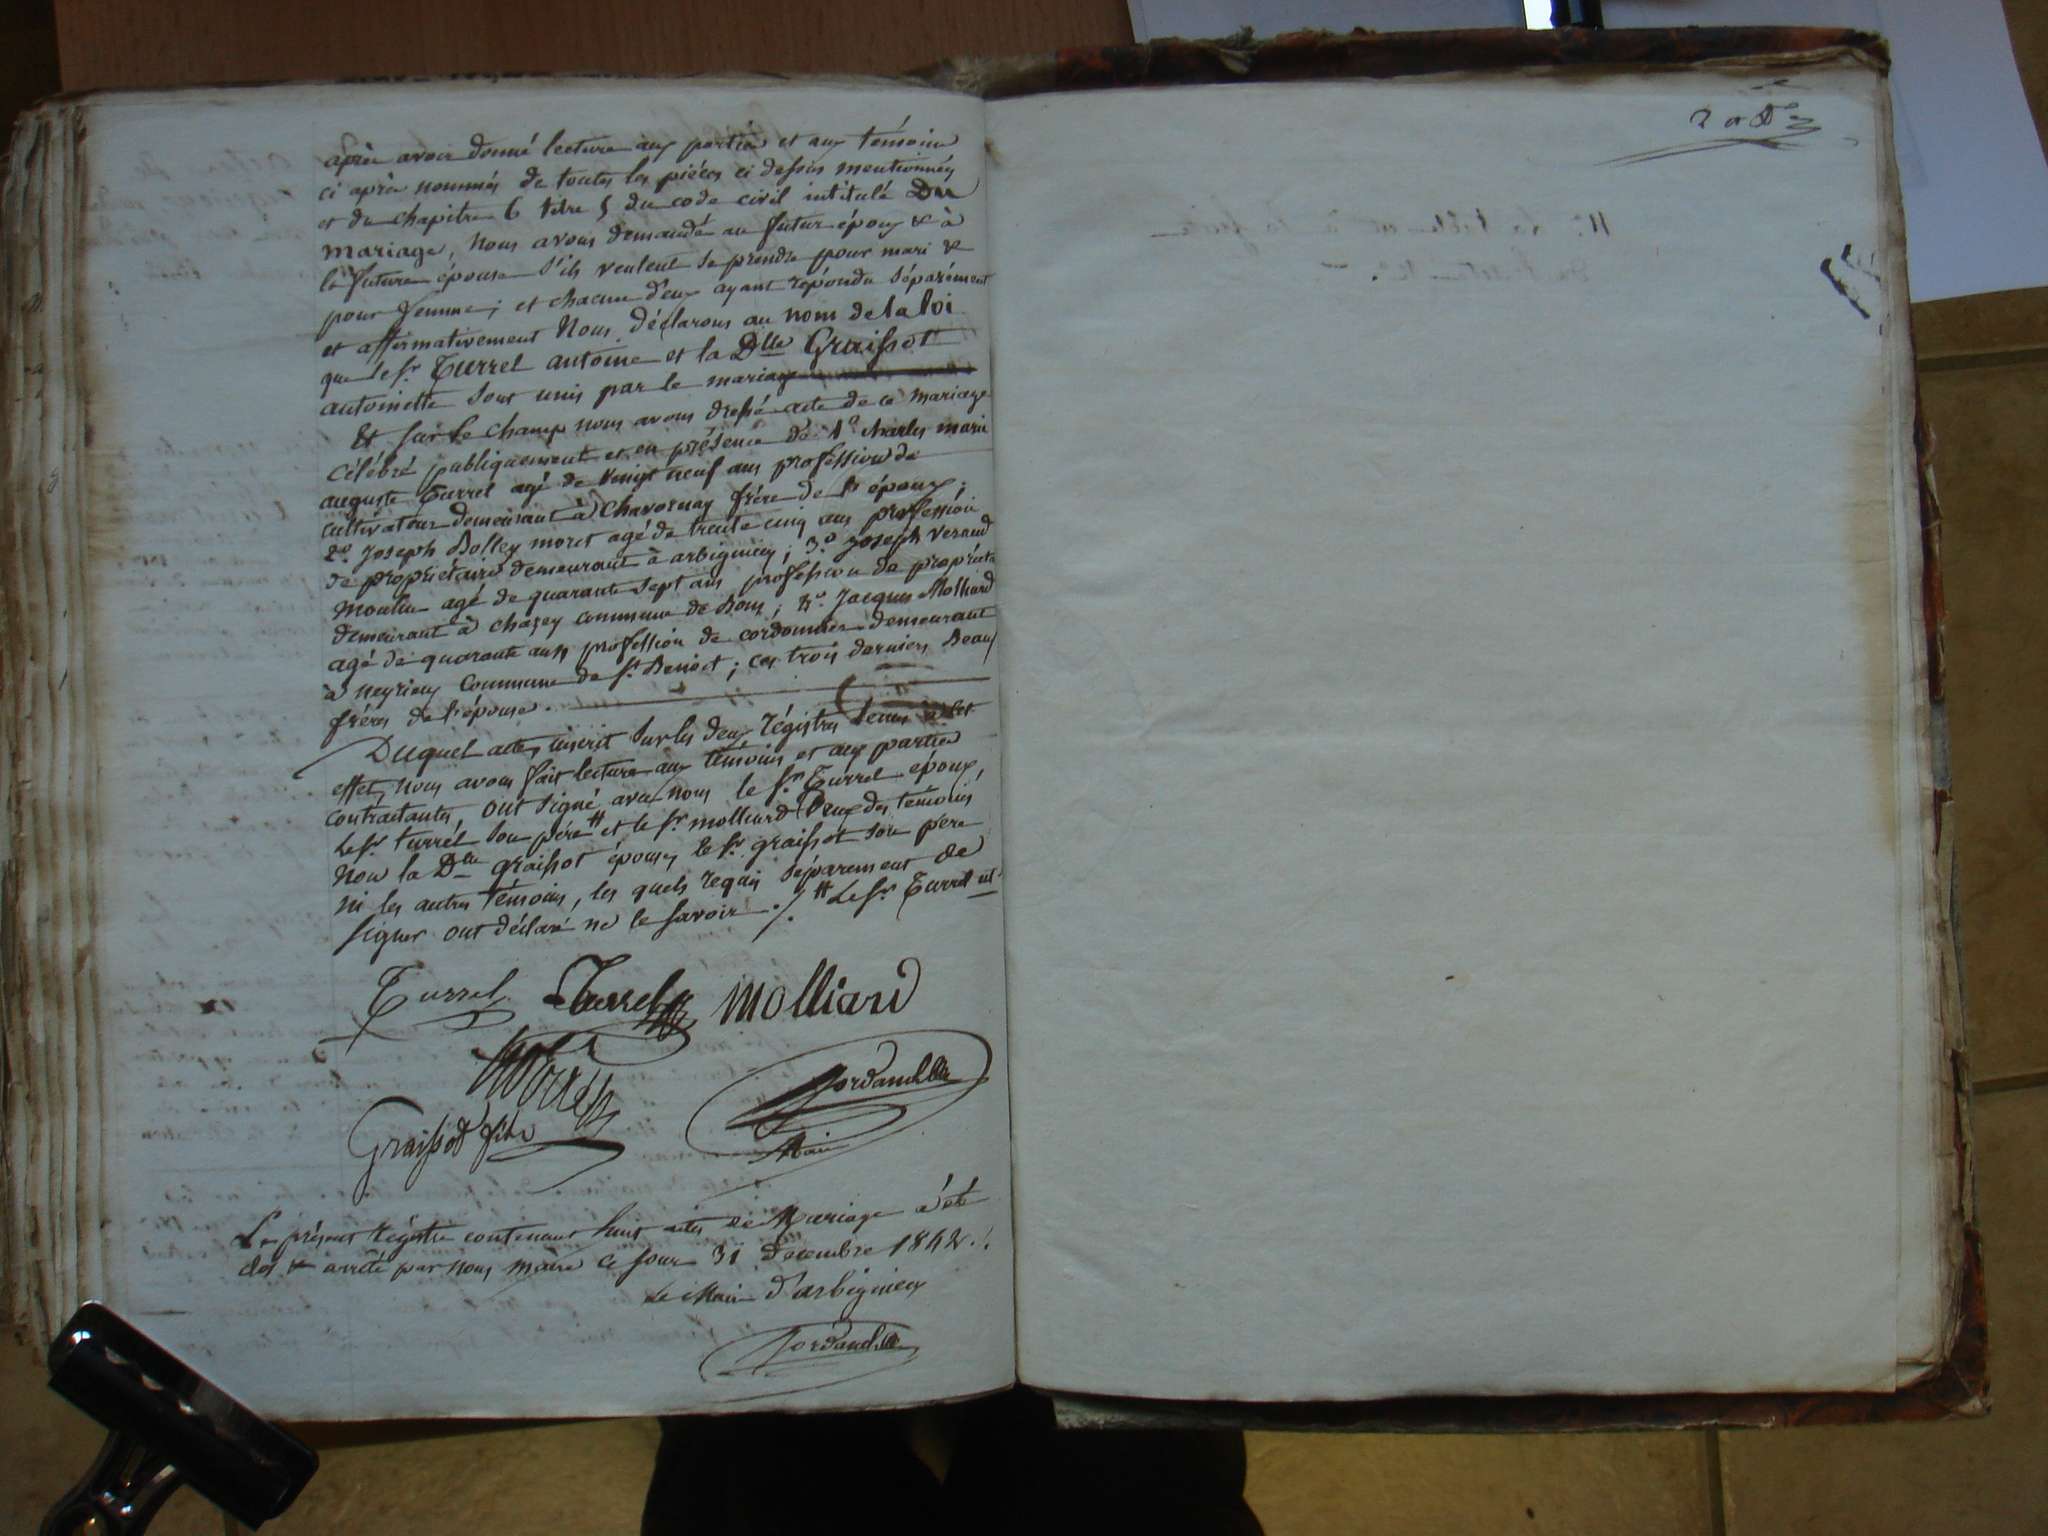 après avoir donné lecture aux parties et aux témoins
ci après nommés de toutes les pièces ci dessus mentionnées
et du chapitre 6 titre 5 du code civil intitulé Du
mariage, nous avons demandé au futur époux & à
la future épouse s'ils veulent se prendre pour mari &
pour femme; et chacun d'eux ayant répondu séparément
et affirmativement Nous déclarons au nom de la loi
que le Sr Turrel antoine et la Dlle Graissot
antoinette sont unis par le mariage
Et sur le champ nous avons dressé acte de ce mariage
célébré publiquement et en présence de 1º charles marie
auguste Turrel agé de vingt neuf ans profession de
cultivateur demeurant à Chavornay frère de l'époux;
2º Joseph Bolley moret agé de trente cinq ans profession
de propriétaire demeurant à arbignieu; 3º Joseph Vernad
Moulin agé de quarante sept ans profession de propriéta
demeurant à chazey commune de Bons; 4º Jacques Molliard
agé de quarante ans profession de cordonnier demeurant
à neyrieu commune de St Benoit; ces trois derniers Beaux
frères de l'épouse.
Duquel acte, inscrit sur les deux régistres tenus à cet
effet, nous avons fait lecture aux témoins et aux parties
contractantes, ont signé avec nous le Sr Turrel époux,
le Sr turrel son père # et le Sr molliard deux des témoins
Non la Dlle graissot épouse, le Sr graissot son père
ni les autres témoins, les quels requis séparement de
signer ont déclaré ne le savoir ./. # Le Sr Turrel
Turrel Turrel Molliard
Jordan
Graissot fils
Maire
Le présent Régistre contenant huit actes de Mariage a été
clos & arrêté par nous maire ce jour 31 decembre 1842 ./.
Le Maire d'arbignieu
Jordan